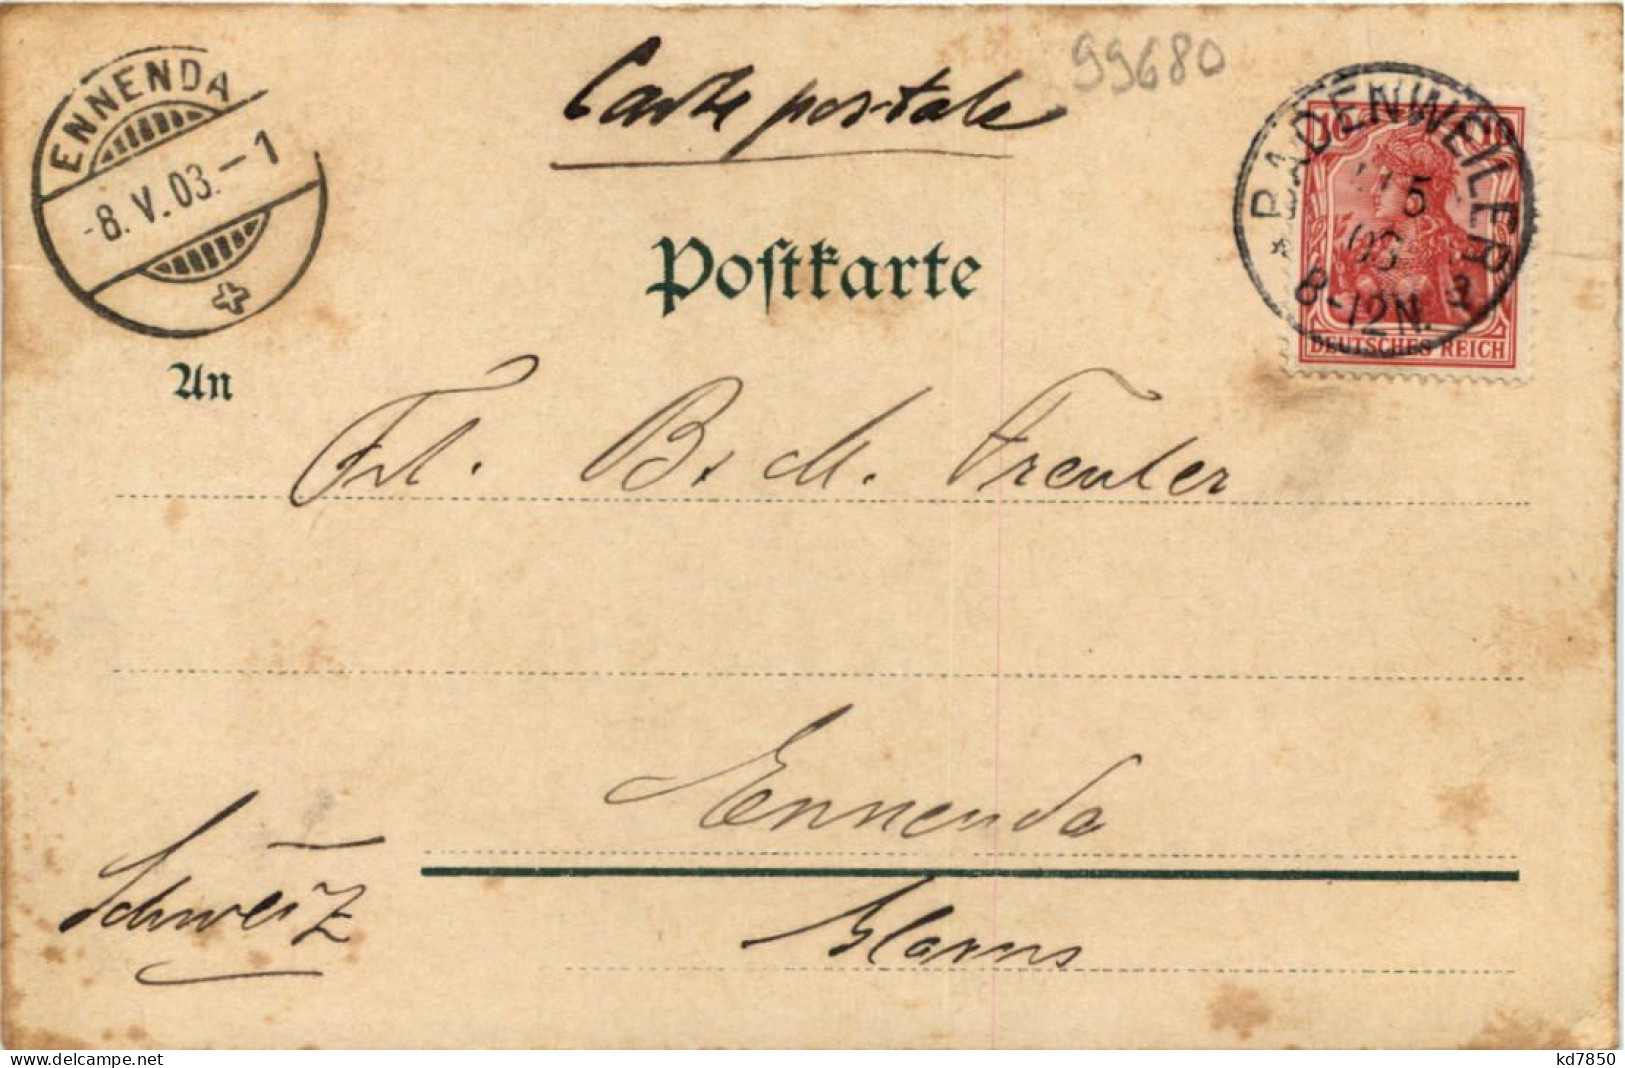 Carte postale
99680
ENNENDA
-8.V.03.-1
BADENWEILER
5
03
8-12N.
10
DEUTSCHES REICH
Postkarte
An
Frl. B. & M. Freuler
Ennenda
Schweiz
Glarus
delcampe.net
kd7850